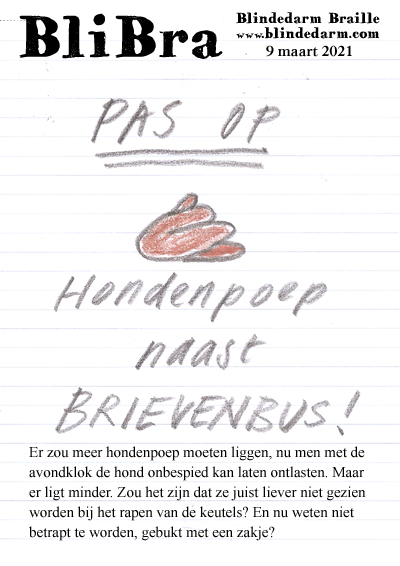 BliBra
Blindedarm Braille
www.blindedarm.com
9 maart 2021
PAS OP
Hondenpoep
naast
BRIEVENBUS!
Er zou meer hondenpoep moeten liggen, nu men met de
avondklok de hond onbespied kan laten ontlasten. Maar
er ligt minder. Zou het zijn dat ze juist liever niet gezien
worden bij het rapen van de keutels? En nu weten niet
betrapt te worden, gebukt met een zakje?